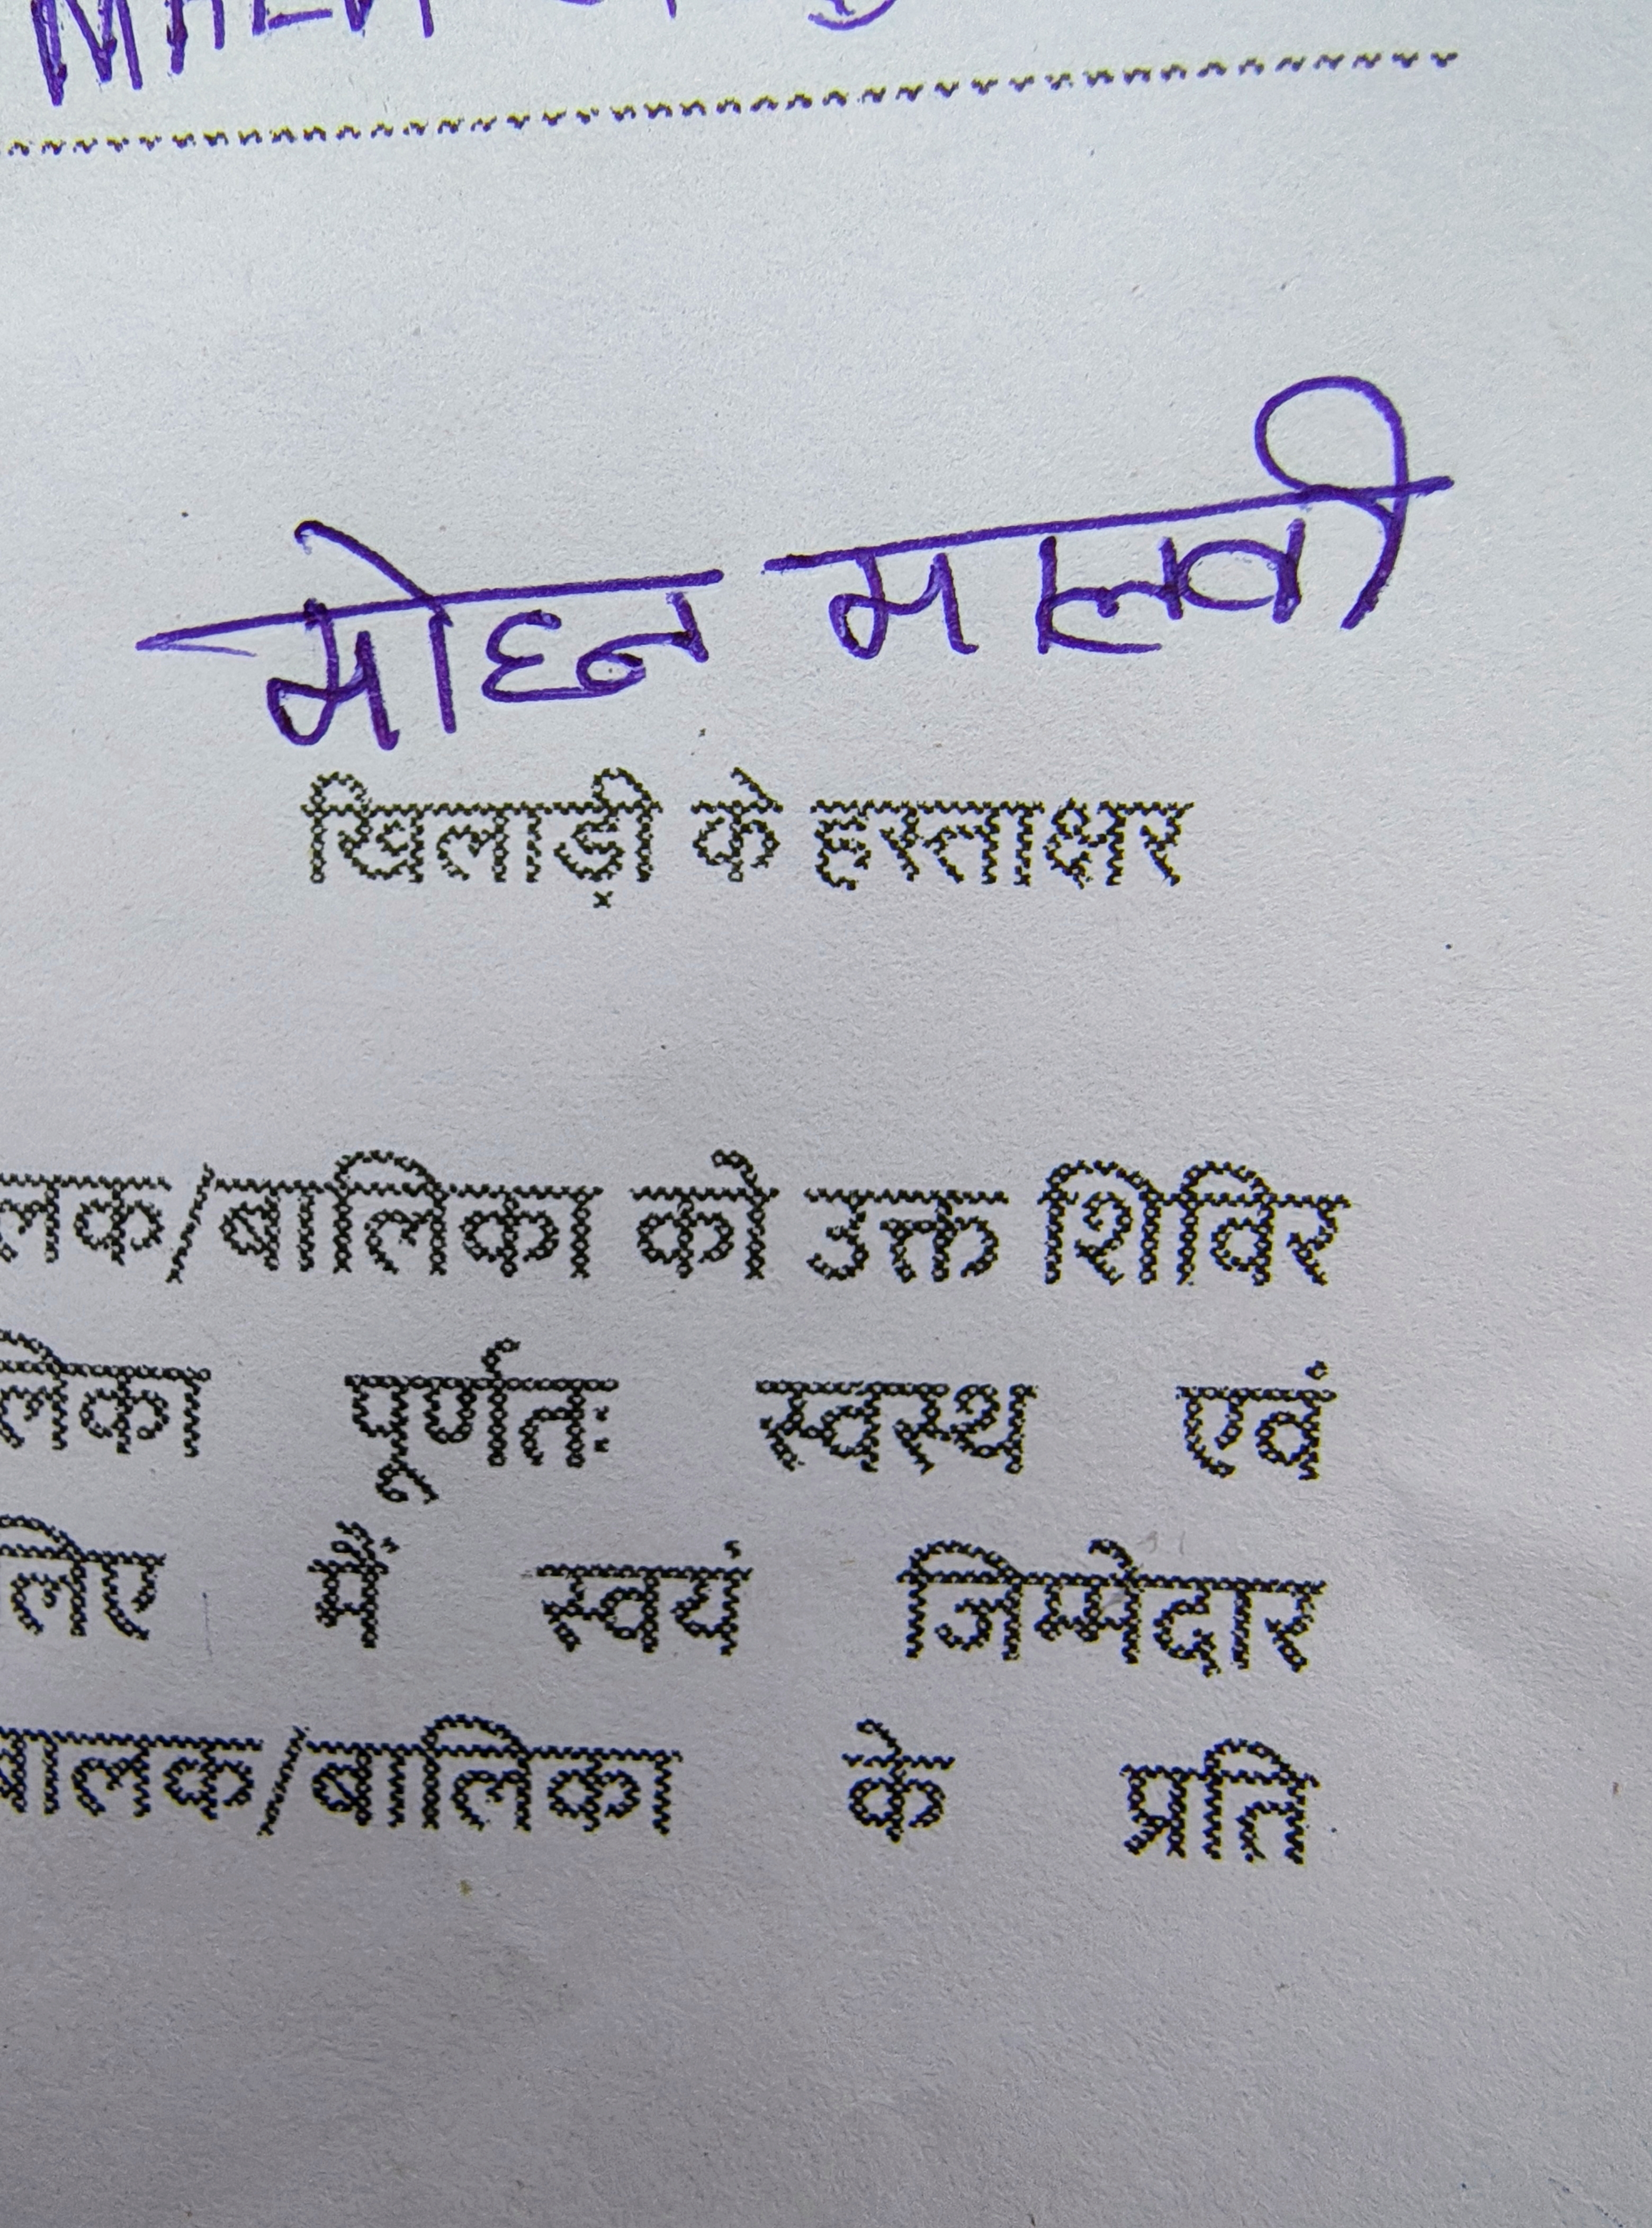 मोहन मालवी
खिलाड़ी के हस्ताक्षर
लक/बालिका को उक्त शिविर
लिका पूर्णतः स्वस्थ एवं
लिए मैं स्वयं जिम्मेदार
बालक/बालिका के प्रति